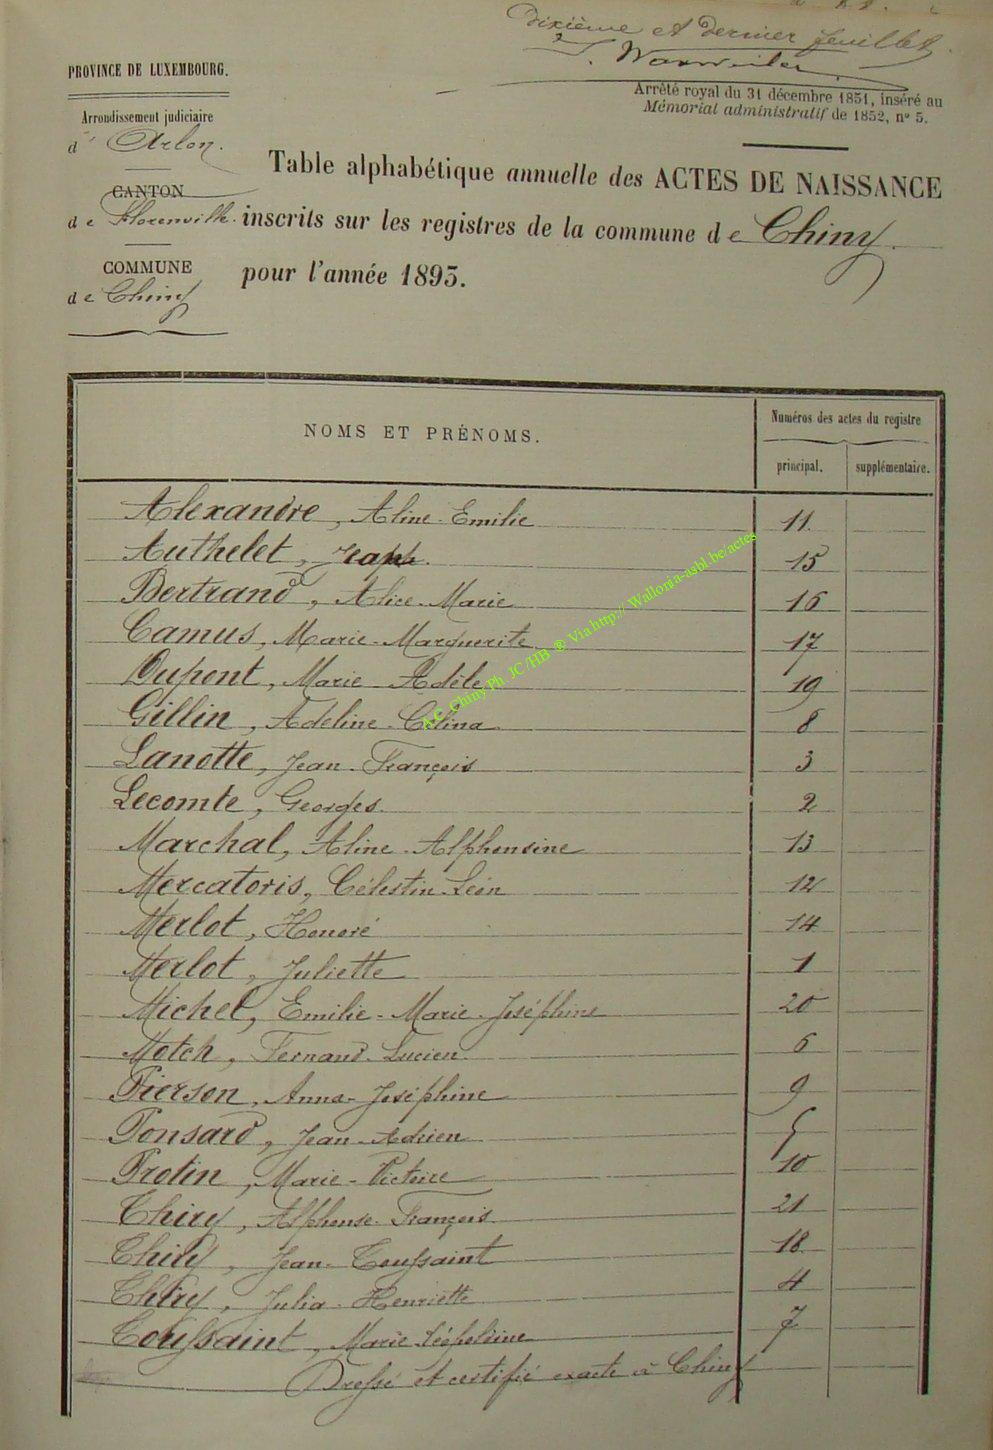 Dixième et dernier feuillet
PROVINCE DE LUXEMBOURG.
Arrêté royal du 31 décembre 1851, inséré au
Mémorial administratif de 1852, nº 5.
Arrondissement judiciaire
d' Arlon.
CANTON
de Florenville.
COMMUNE
de Chiny
Table alphabétique annuelle des ACTES DE NAISSANCE
inscrits sur les registres de la commune de Chiny.
pour l'année 1893.
NOMS ET PRÉNOMS.
Numéros des actes du registre
principal. supplémentaire.
Alexandre, Aline Emilie 11
Authelet, Jean 15
Bertrand, Alice Marie 16
Camus, Marie-Marguerite 17
Dupont, Marie Adèle 19
Gillin, Adeline Célina 8
Lanotte, Jean François 3
Lecomte, Georges 2
Marchal, Aline Alphonsine 13
Mercatoris, Célestin Léon 12
Merlot, Honoré 14
Merlot, Juliette 1
Michel, Emilie-Marie-Joséphine 20
Motch, Fernand Lucien 6
Pierson, Anna-Joséphine 9
Ponsard, Jean Adrien 5
Protin, Marie-Victoire 10
Thiry, Alphonse François 21
Thiry, Jean-Toussaint 18
Thiry, Julia-Henriette 4
Toussaint, Marie Léopoldine 7
Dressé et certifié exacte à Chiny
A.C. Chiny Ph JC/HB ® Via http:// Wallonia-asbl.be/actes